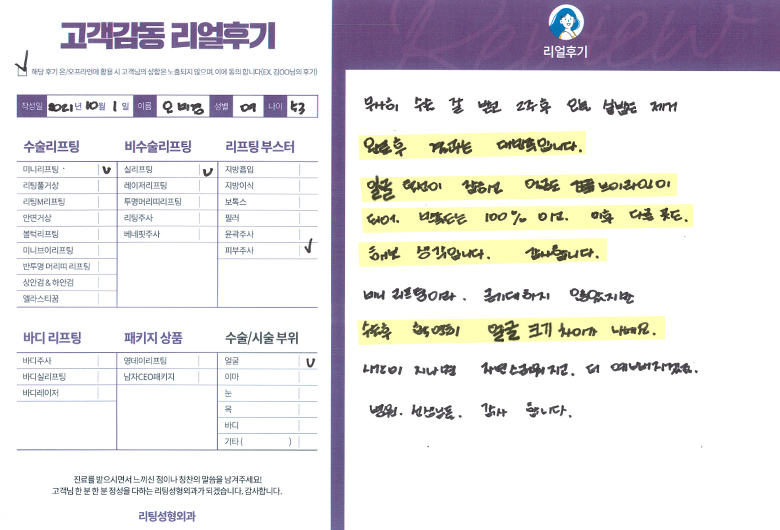 고객감동 리얼후기
해당 후기 온/오프라인에 활용 시 고객님의 성함은 노출되지 않으며, 이에 동의 합니다(EX. 김OO님의 후기)
작성일 2021년 10월 1일 이름 성별 여 나이 53
수술리프팅
미니리프팅
리팅풀거상
리팅M리프팅
안면거상
볼턱리프팅
미니브이리프팅
반투명 머리띠 리프팅
상안검 & 하안검
엘라스티꿈
비수술리프팅
실리프팅
레이저리프팅
투명머리띠리프팅
리팅주사
베네핏주사
리프팅 부스터
지방흡입
지방이식
보톡스
필러
윤곽주사
피부주사
바디 리프팅
바디주사
바디실리프팅
바디레이저
패키지 상품
영데이리프팅
남자CEO패키지
수술/시술 부위
얼굴
이마
눈
목
바디
기타 ( )
진료를 받으시면서 느끼신 점이나 칭찬의 말씀을 남겨주세요!
고객님 한 분 한 분 정성을 다하는 리팅성형외과가 되겠습니다. 감사합니다.
리팅성형외과
Review
리얼후기
무사히 수술 잘 받고 2주후 오늘 실밥 제거
완료후 결과는 대만족입니다.
얼굴 라인이 브이라인이
되어. 만족도는 100% 이고. 이후 다른 곳도.
해보 생각입니다. 감사합니다.
미니 리프팅이라. 큰기대하지 않았지만
수술후 확연히 얼굴 크기 차이가 나네요.
시간이 지나면 자연스러워지고. 더 예뻐지겠죠.
병원. 선생님들. 감사 합니다.